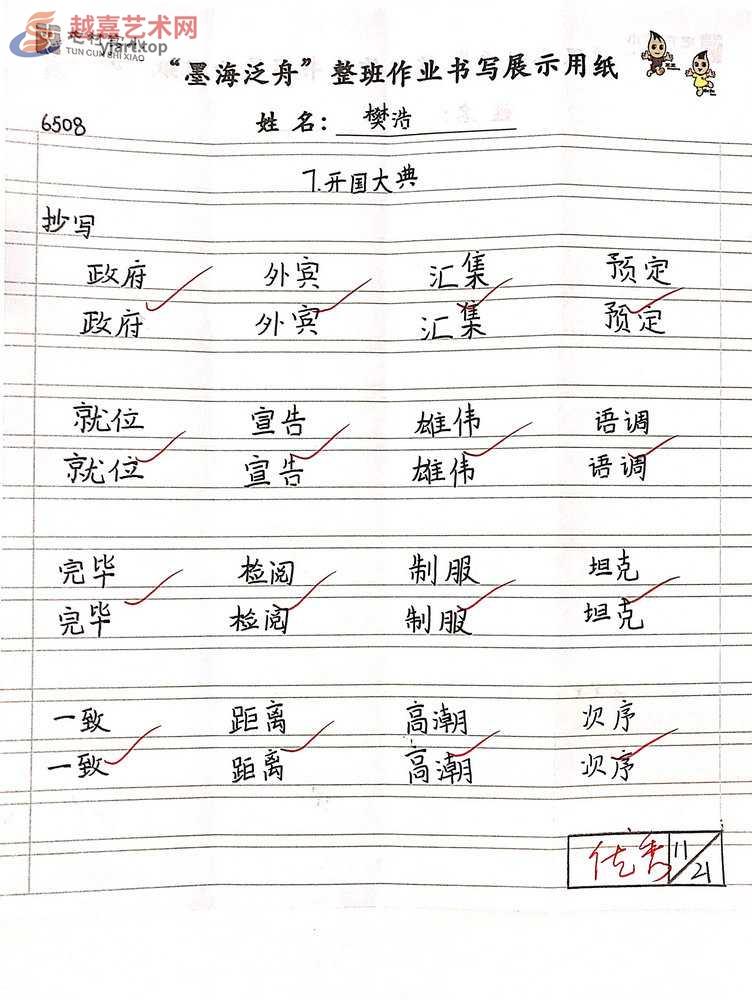 越嘉艺术网
yjart.top
TUN CUN SHI XIAO
“墨海泛舟”整班作业书写展示用纸
6508 姓名: 樊浩
7.开国大典
抄写
政府 外宾 汇集 预定
政府 外宾 汇集 预定
就位 宣告 雄伟 语调
就位 宣告 雄伟 语调
完毕 检阅 制服 坦克
完毕 检阅 制服 坦克
一致 距离 高潮 次序
一致 距离 高潮 次序
优秀 11/21